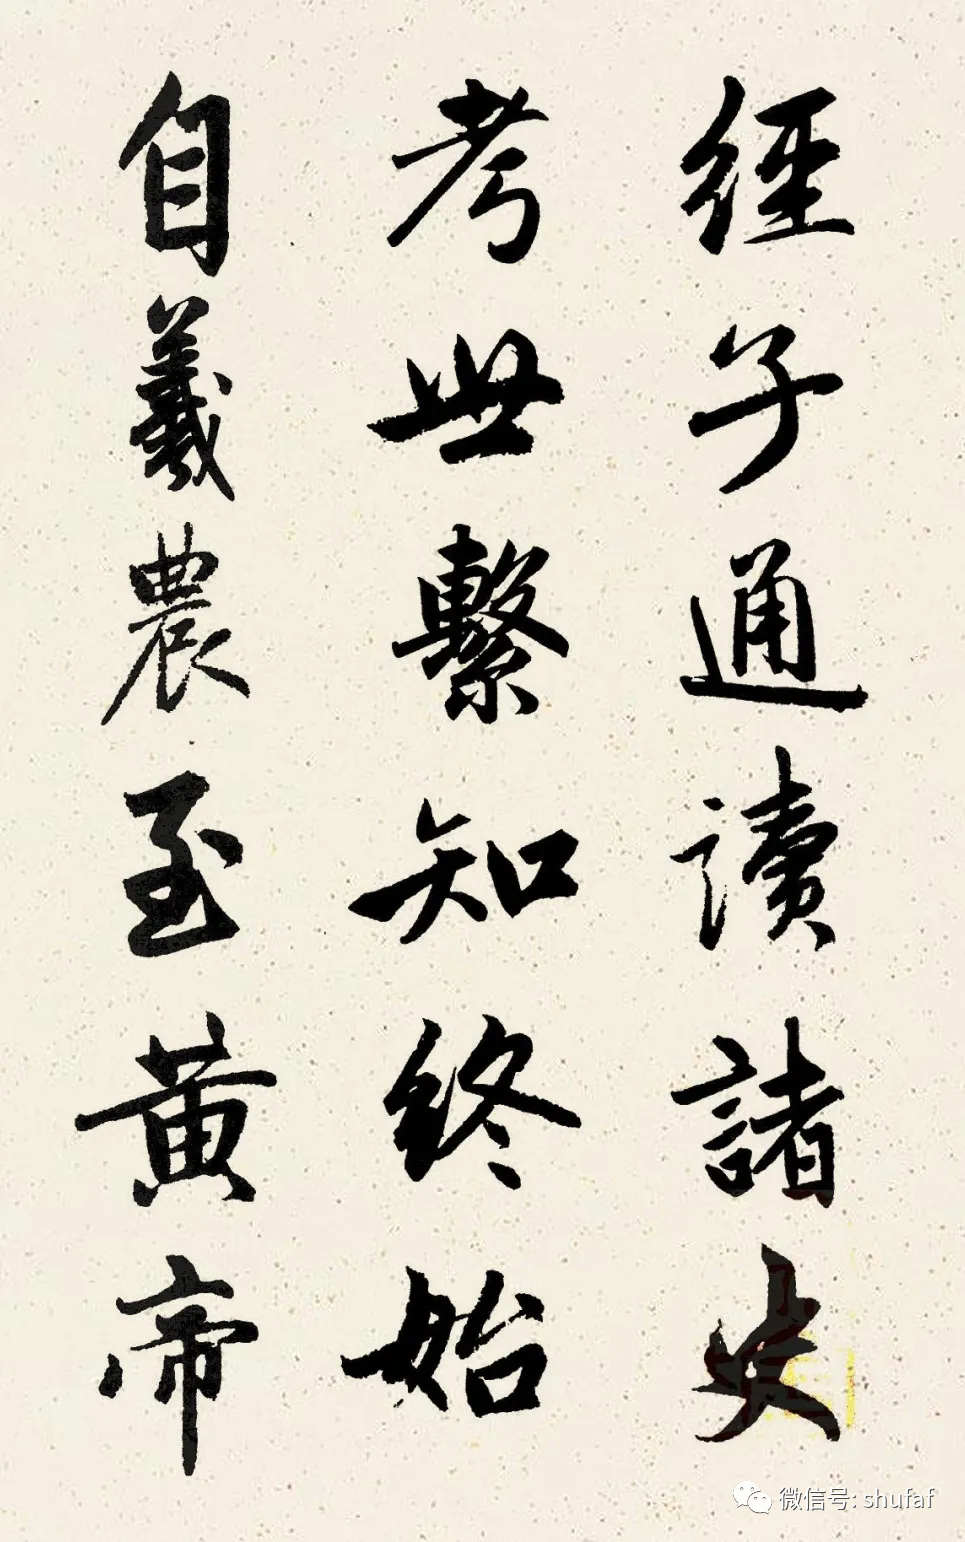 經子通讀諸史
考世繫知終始
自羲農至黄帝
微信号: shufaf